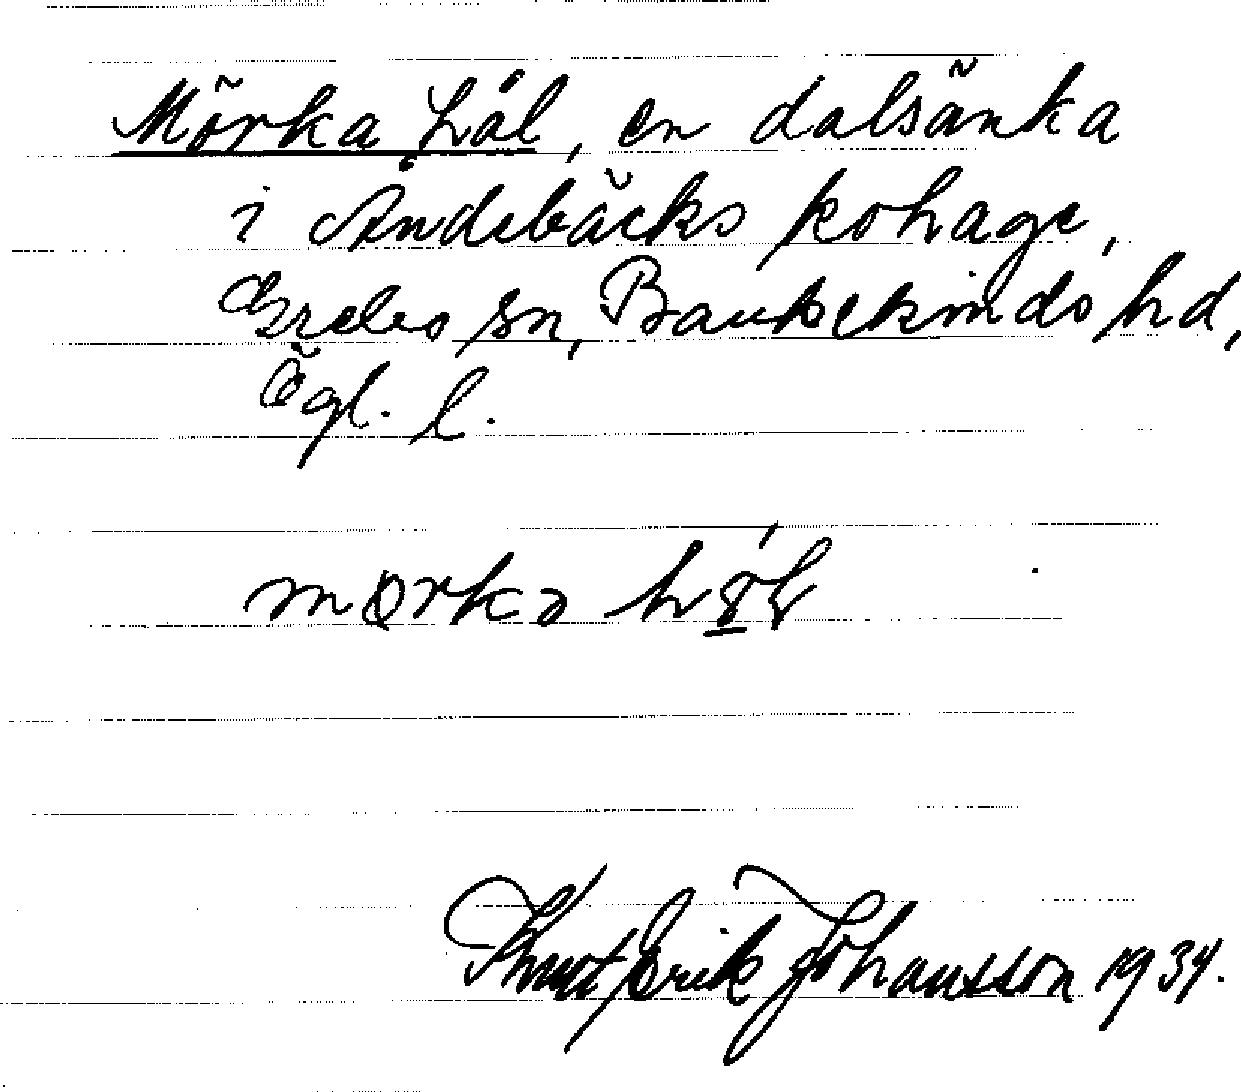 Mörka hål, en dalsänka
i Åndebäcks kohage,
sn, Bankekinds hd,
Ögl. l.
Knut Erik Johansson 1934.